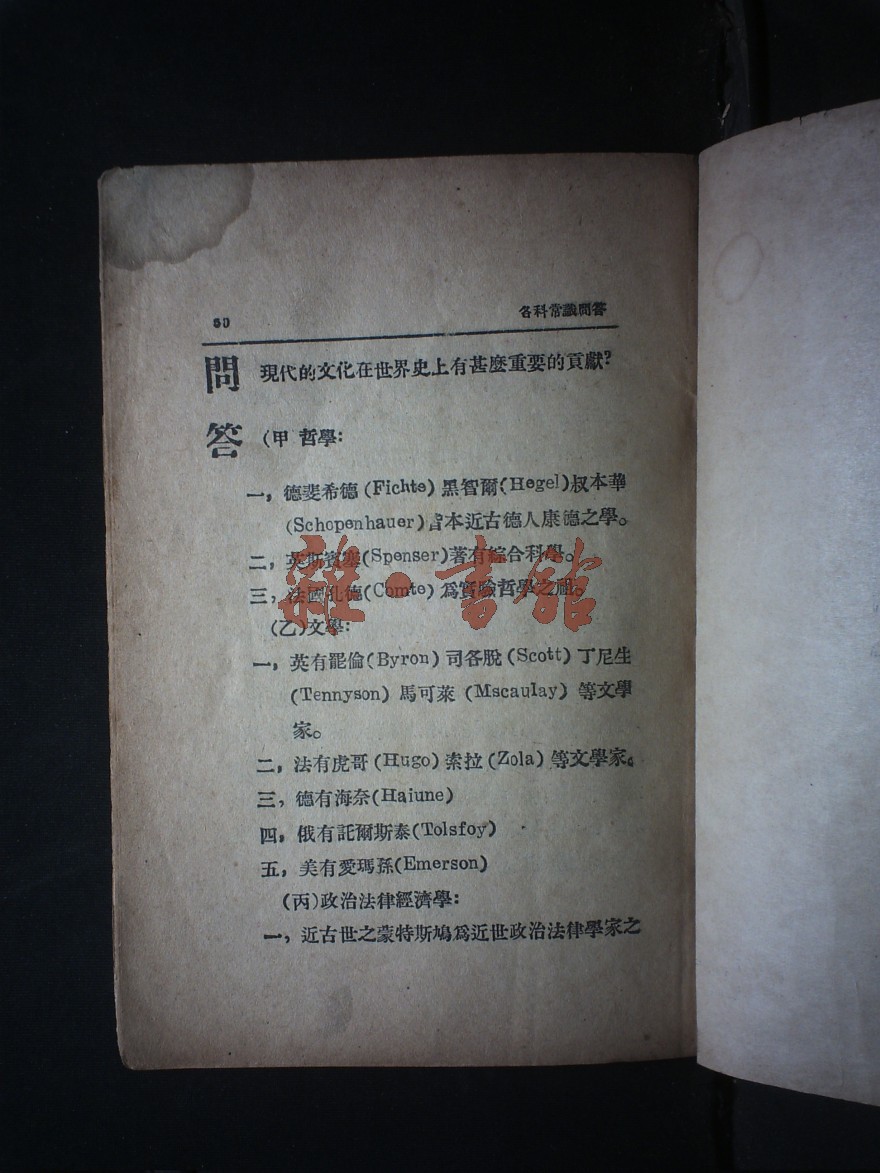 50 各科常識問答
問 現代的文化在世界史上有甚麼重要的貢獻?
答 (甲 哲學:
一,德斐希德(Fichte)黑智爾(Hegel)叔本華
(Schopenhauer)皆本近古德人康德之學。
二,英斯賓塞(Spenser)著有綜合科學。
三,法國孔德(Comte)爲實驗哲學之祖。
雜·書館
(乙)文學:
一,英有罷倫(Byron)司各脫(Scott)丁尼生
(Tennyson)馬可萊(Mscaulay)等文學
家。
二,法有虎哥(Hugo)索拉(Zola)等文學家。
三,德有海奈(Haiune)
四,俄有託爾斯泰(Tolsfoy)
五,美有愛瑪孫(Emerson)
(丙)政治法律經濟學:
一,近古世之蒙特斯鳩爲近世政治法律學家之